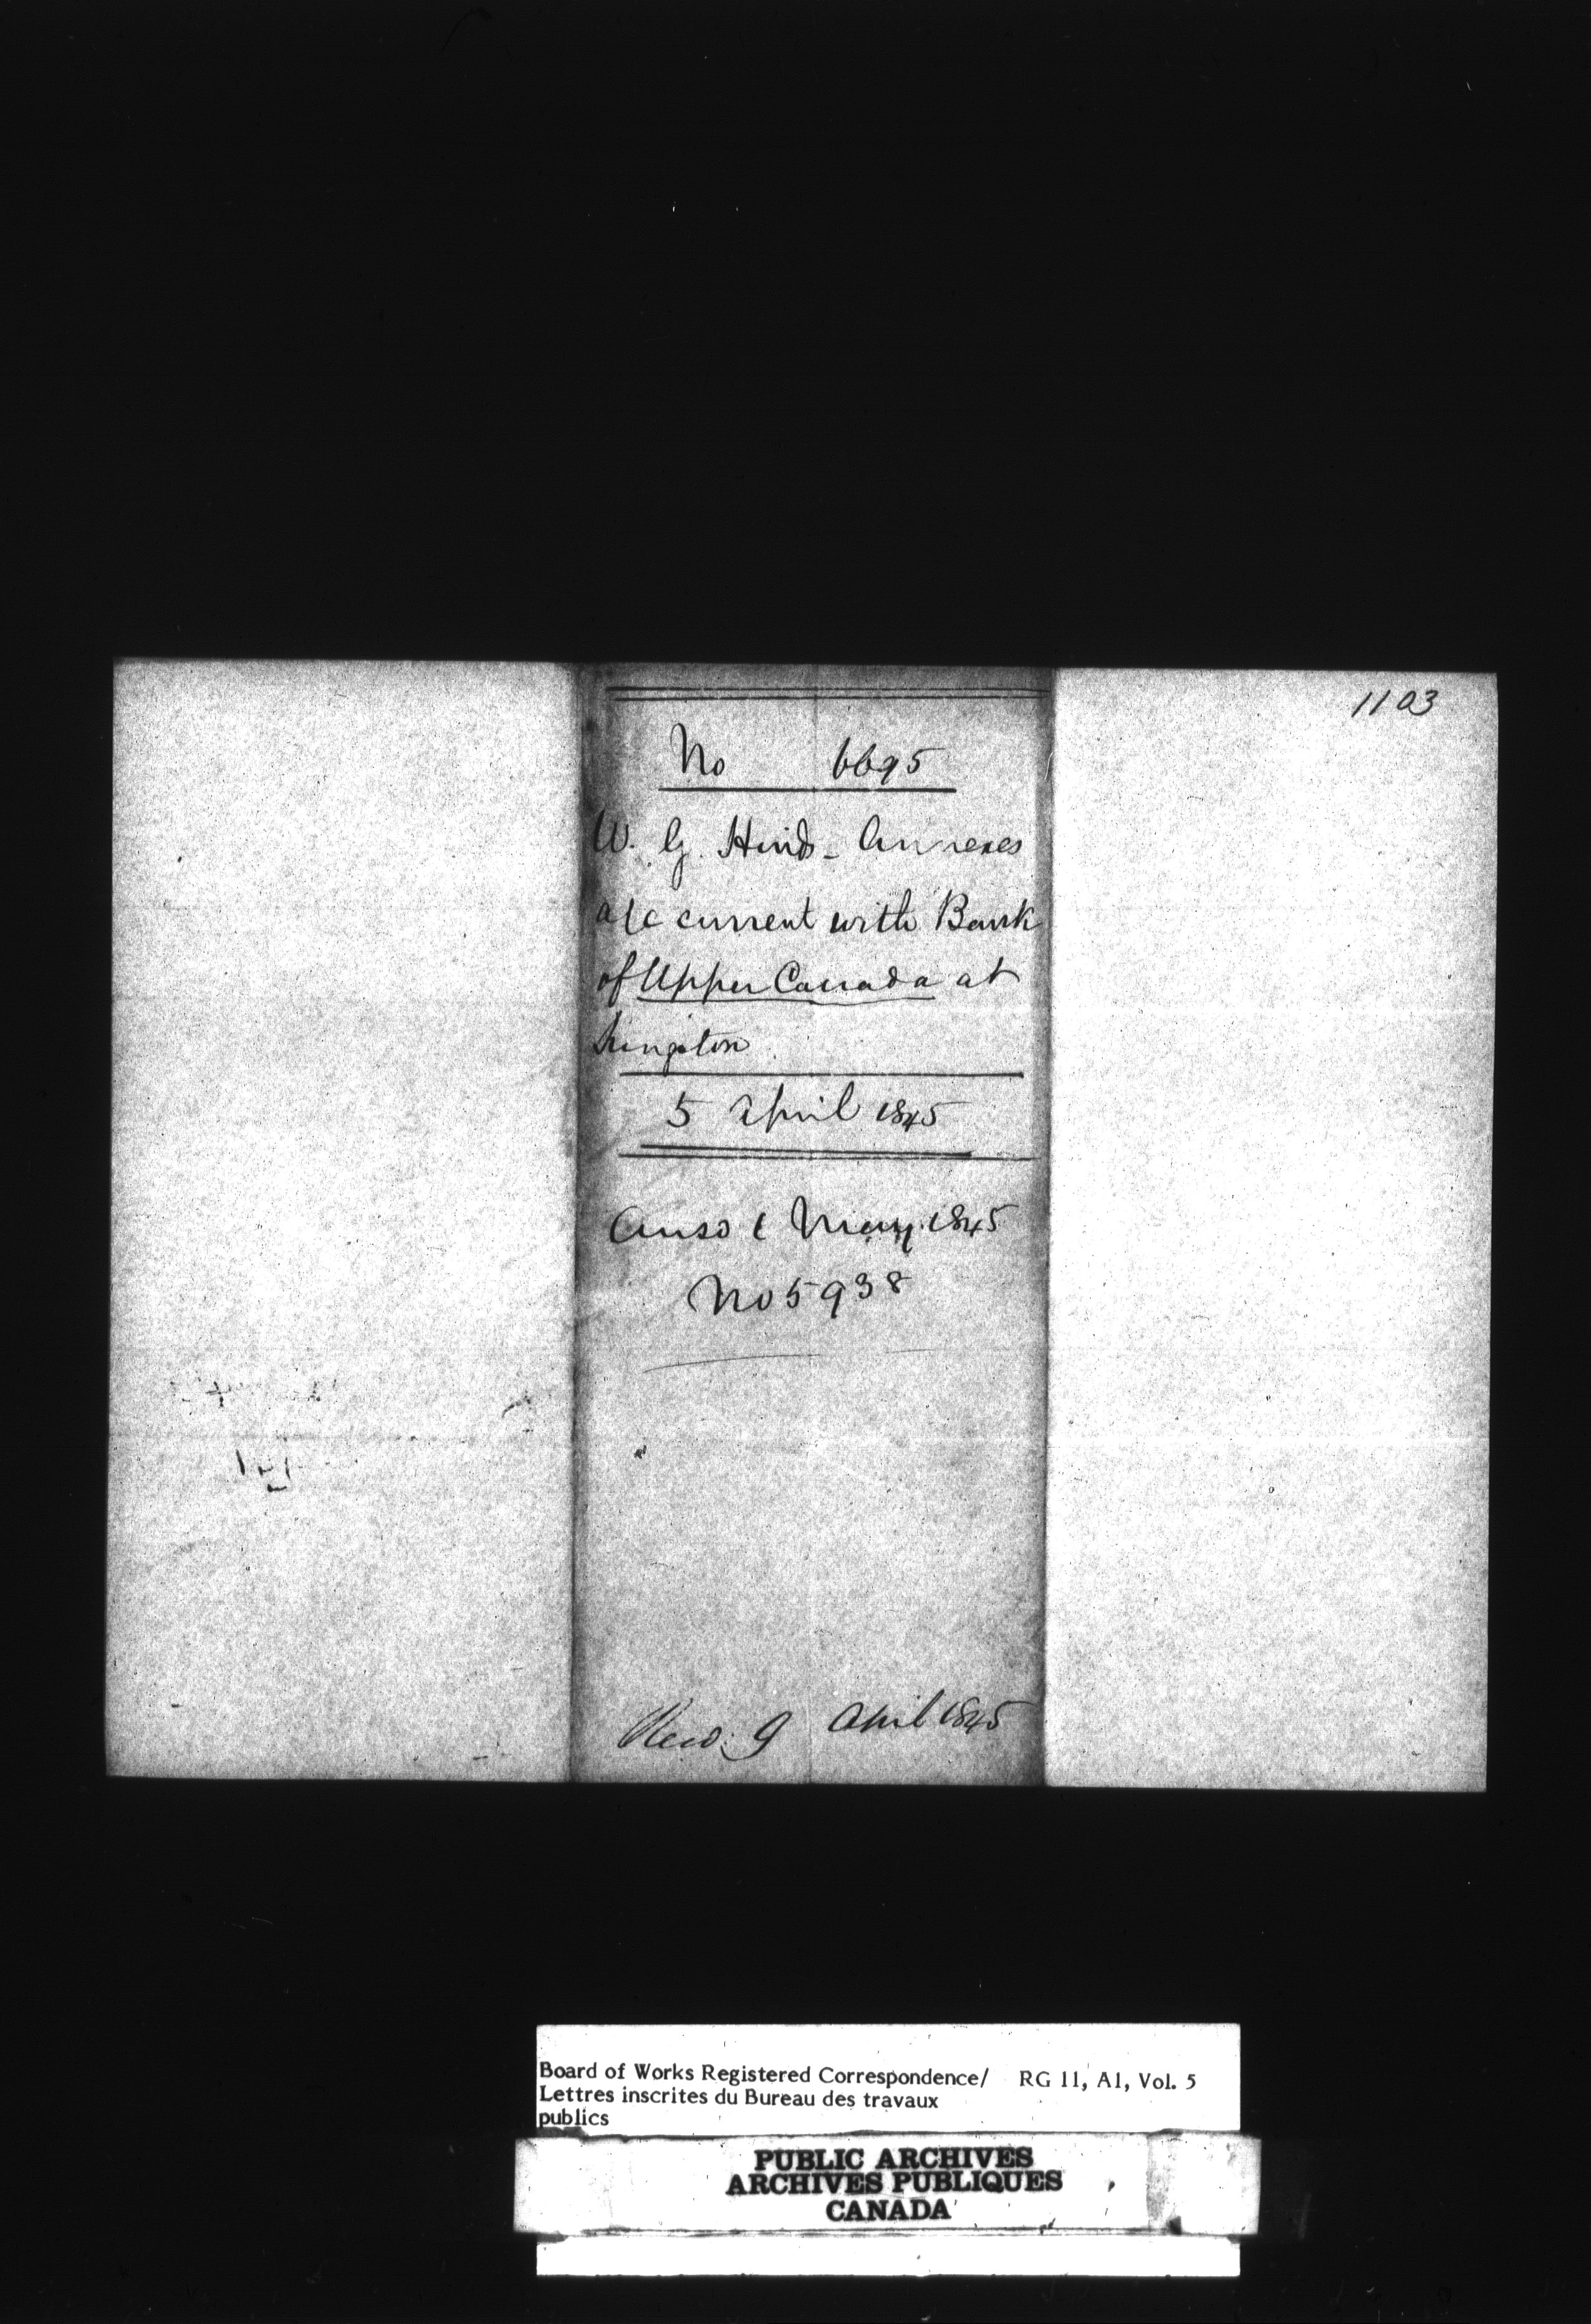 1103
No 6695
W. G. Hinds - Annexes
a/c current with Bank
of Upper Canada at
Kingston
5 April 1845
Ansd 1 May 1845
No 5938
Recd. 9 April 1845
Board of Works Registered Correspondence/ RG 11, A1, Vol. 5
Lettres inscrites du Bureau des travaux
publics
PUBLIC ARCHIVES
ARCHIVES PUBLIQUES
CANADA